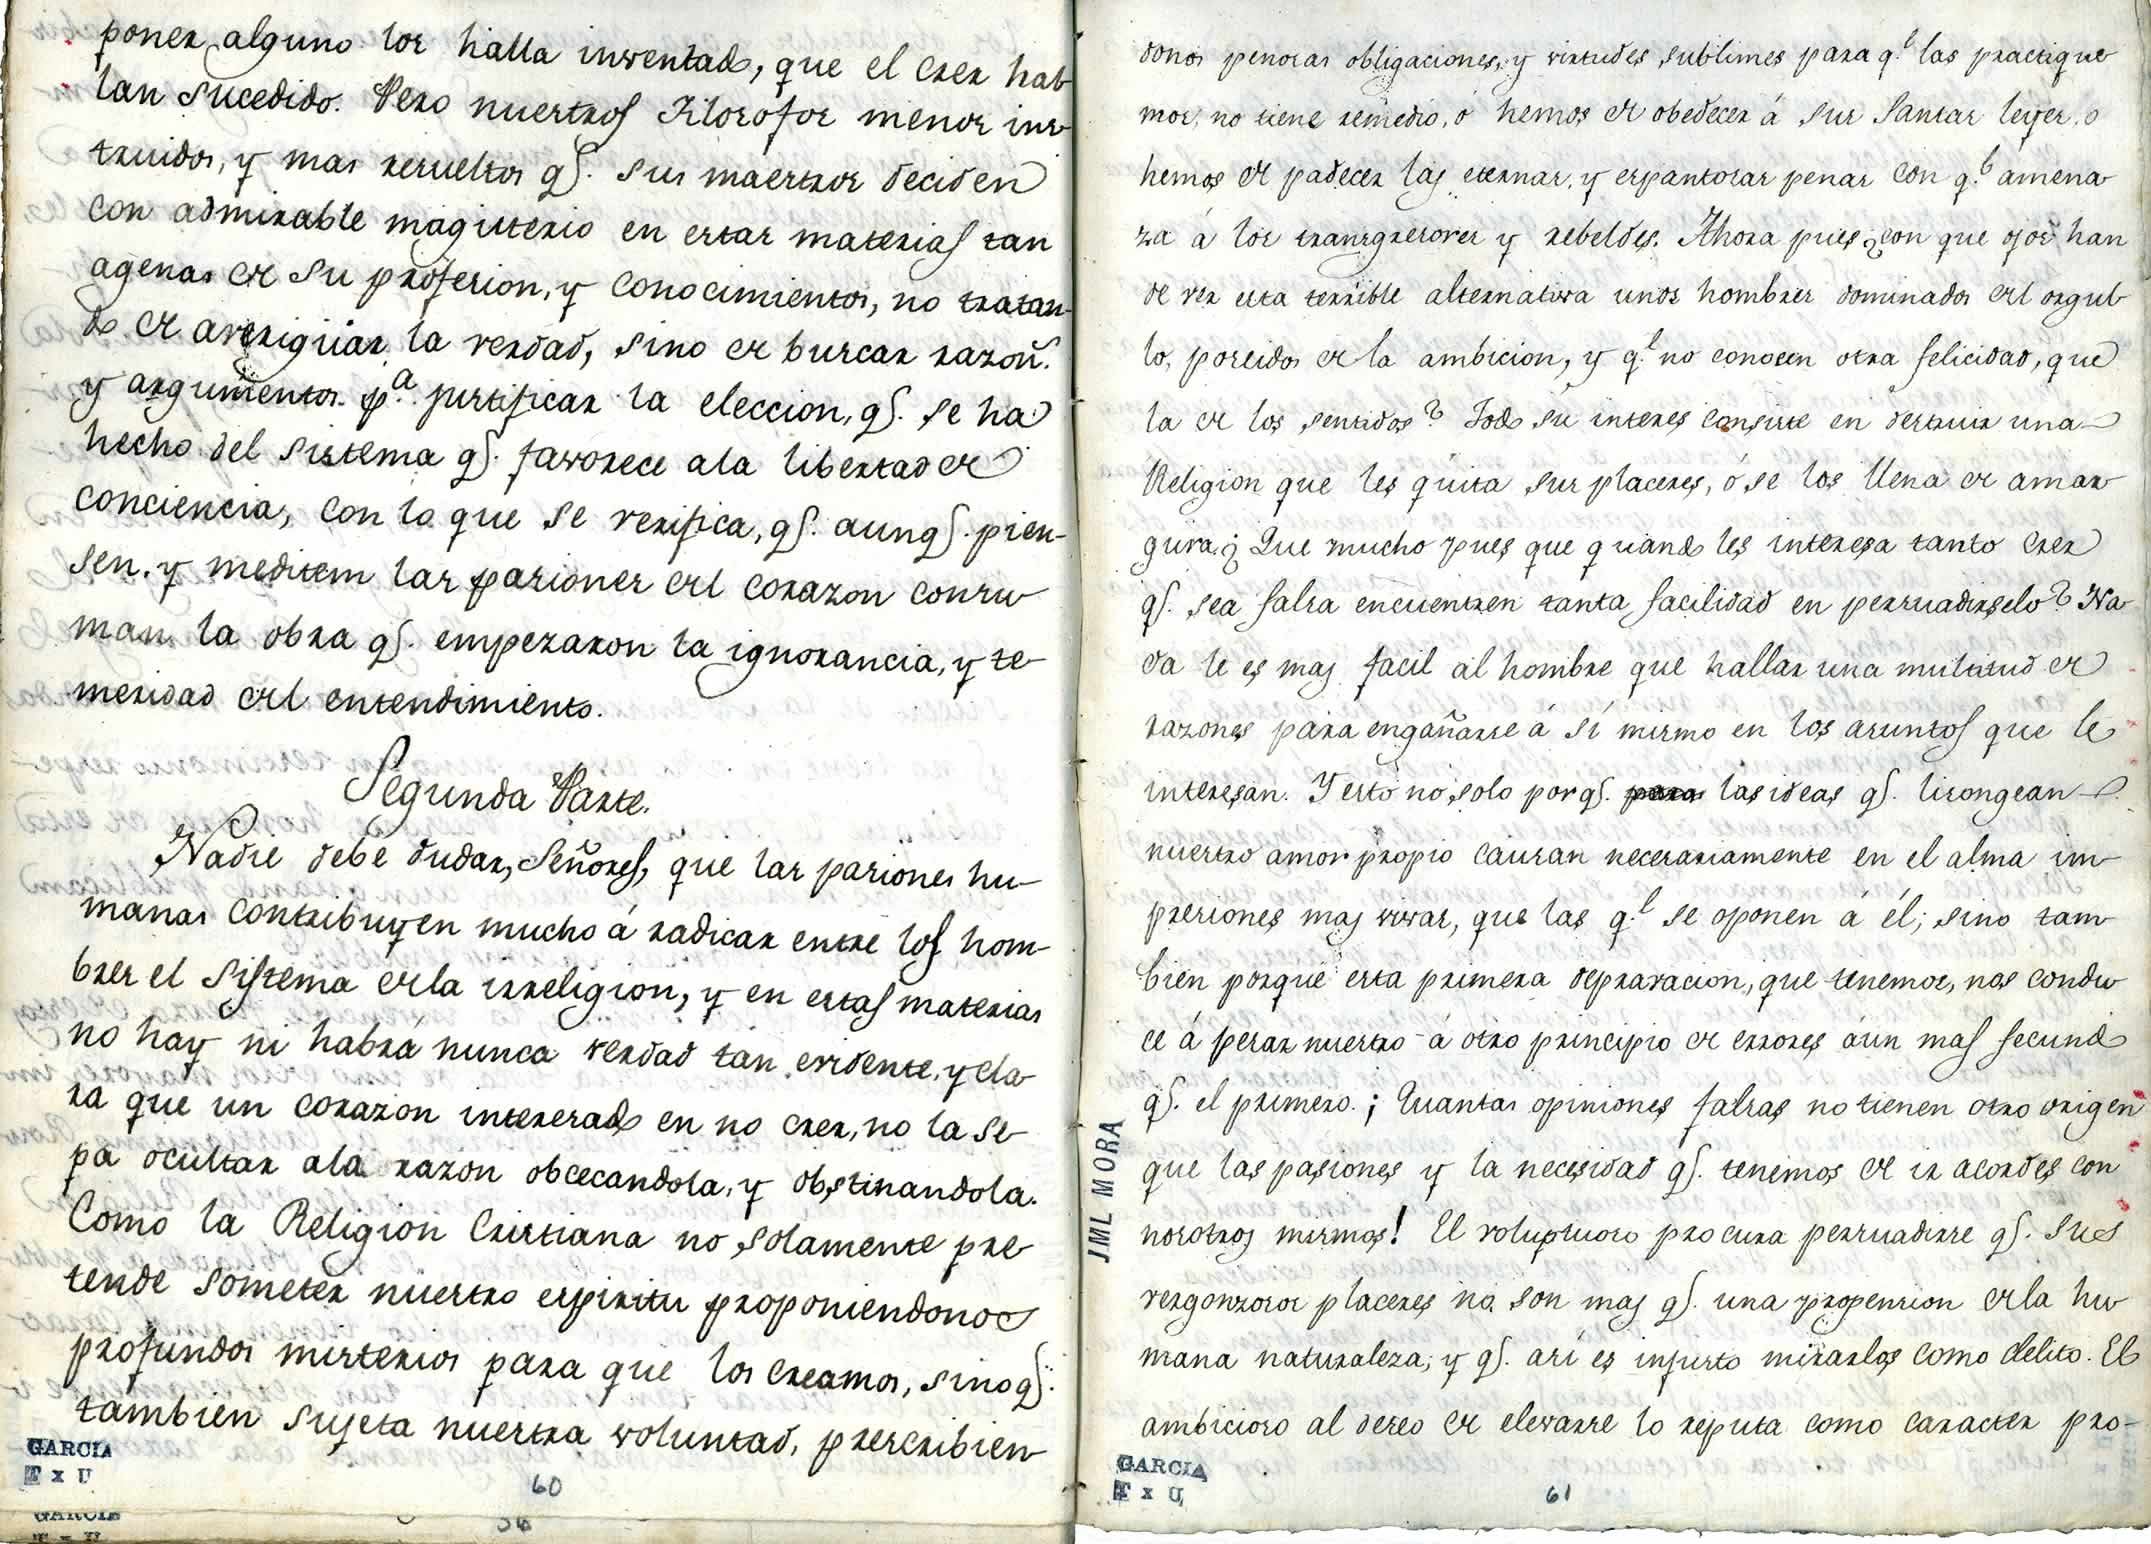 poner alguno los halla inventado, que el creer hab
lan sucedido. Pero nuestros Filosofos menos ins
truidos, y mas resueltos q. sus maestros deciden
con admirable magisterio en estas materias tan
agenas de su profesion, y conocimientos, no tratan-
do de averiguar la verdad, sino de buscar razon.
y argumentos p.a justificar la eleccion, q. se ha
hecho del sistema q. favorece ala libertad de
conciencia, con lo que se verifica, q. aunq. pien-
sen, y mediten las pasiones del corazon consu
man la obra q. empezaron la ignorancia, y te-
meridad del entendimiento.
Segunda Parte.
Nadie debe dudar, Señores, que las pasiones hu-
manas contribuyen mucho á radicar entre los hom-
bres el sistema de la irreligion, y en estas materias
no hay ni habrá nunca verdad tan evidente, y cla
ra que un corazon interesado en no creer, no la se
pa ocultar ala razon obcecandola, y obstinandola.
Como la Religion Cristiana no solamente pre
tende someter nuestro espiritu proponiendonos
profundos misterios para que los creamos, sino q.
tambien sujeta nuestra voluntad, prescribien
GARCIA
T x U
60
GARCIA
T x U
donos penosas obligaciones, y virtudes sublimes para q.e las practique
mos, no tiene remedio, ó hemos de obedecer á sus santas leyes, o
hemos de padecer las eternas, y espantosas penas con q.e amena
za á los transgresores y rebeldes. Ahora pues ¿con que ojos han
de ver esta terrible alternativa unos hombres dominados del orgul
lo, poseidos de la ambicion, y q.e no conocen otra felicidad, que
la de los sentidos? Todo su interes consiste en destruir una
Religion que les quita sus placeres, ó se los llena de amar
gura. ¿Que mucho pues que quando les interesa tanto creer
q. sea falsa encuentren tanta facilidad en persuadirselo? Na
da le es mas facil al hombre que hallar una multitud de
razones para engañarse á sí mismo en los asuntos que le
interesan. Y esto no solo porq. para las ideas q. lisongean
nuestro amor propio causan necesariamente en el alma im
presiones mas vivas, que las q.e se oponen á él; sino tam
bien porque esta primera depravacion, que tenemos, nos condu
ce á pesar nuestro á otro principio de errores áun mas fecundo
q. el primero. ¡Quantas opiniones falsas no tienen otro origen
que las pasiones y la necesidad q. tenemos de ir acordes con
nosotros mismos! El voluptuoso procura persuadirse q. sus
vergonzosos placeres no son mas q. una propension de la hu
mana naturaleza, y q. asi es injusto mirarlos como delito. El
ambicioso al deseo de elevarse lo reputa como caracter pro-
JML MORA
GARCIA
T x U
61